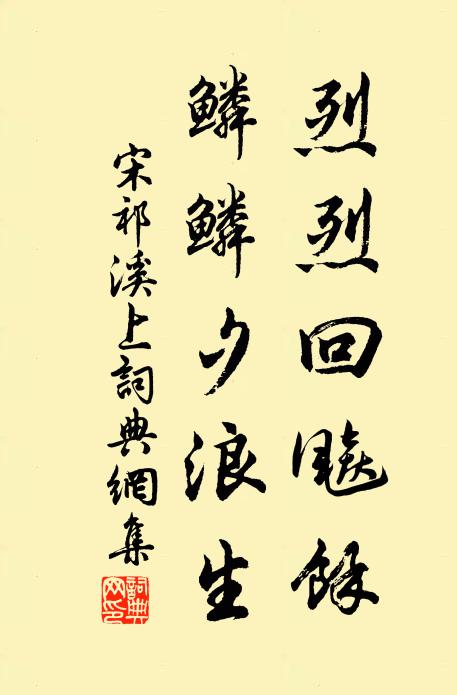 烈烈回飚餘
鱗鱗夕浪生
宋祁溪上詞典網集
詞典网印